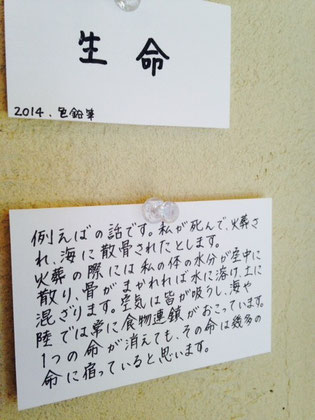 生命
2014. 色鉛筆
例えばの話です。私が死んで、火葬さ
れ、海に散骨されたとします。
火葬の際には私の体の水分が空中に
散り、骨がまかれれば水に溶け、土に
混ざります。空気は皆が吸うし、海や
陸では常に食物連鎖がおこっています。
1つの命が消えても、その命は幾多の
命に宿っていると思います。